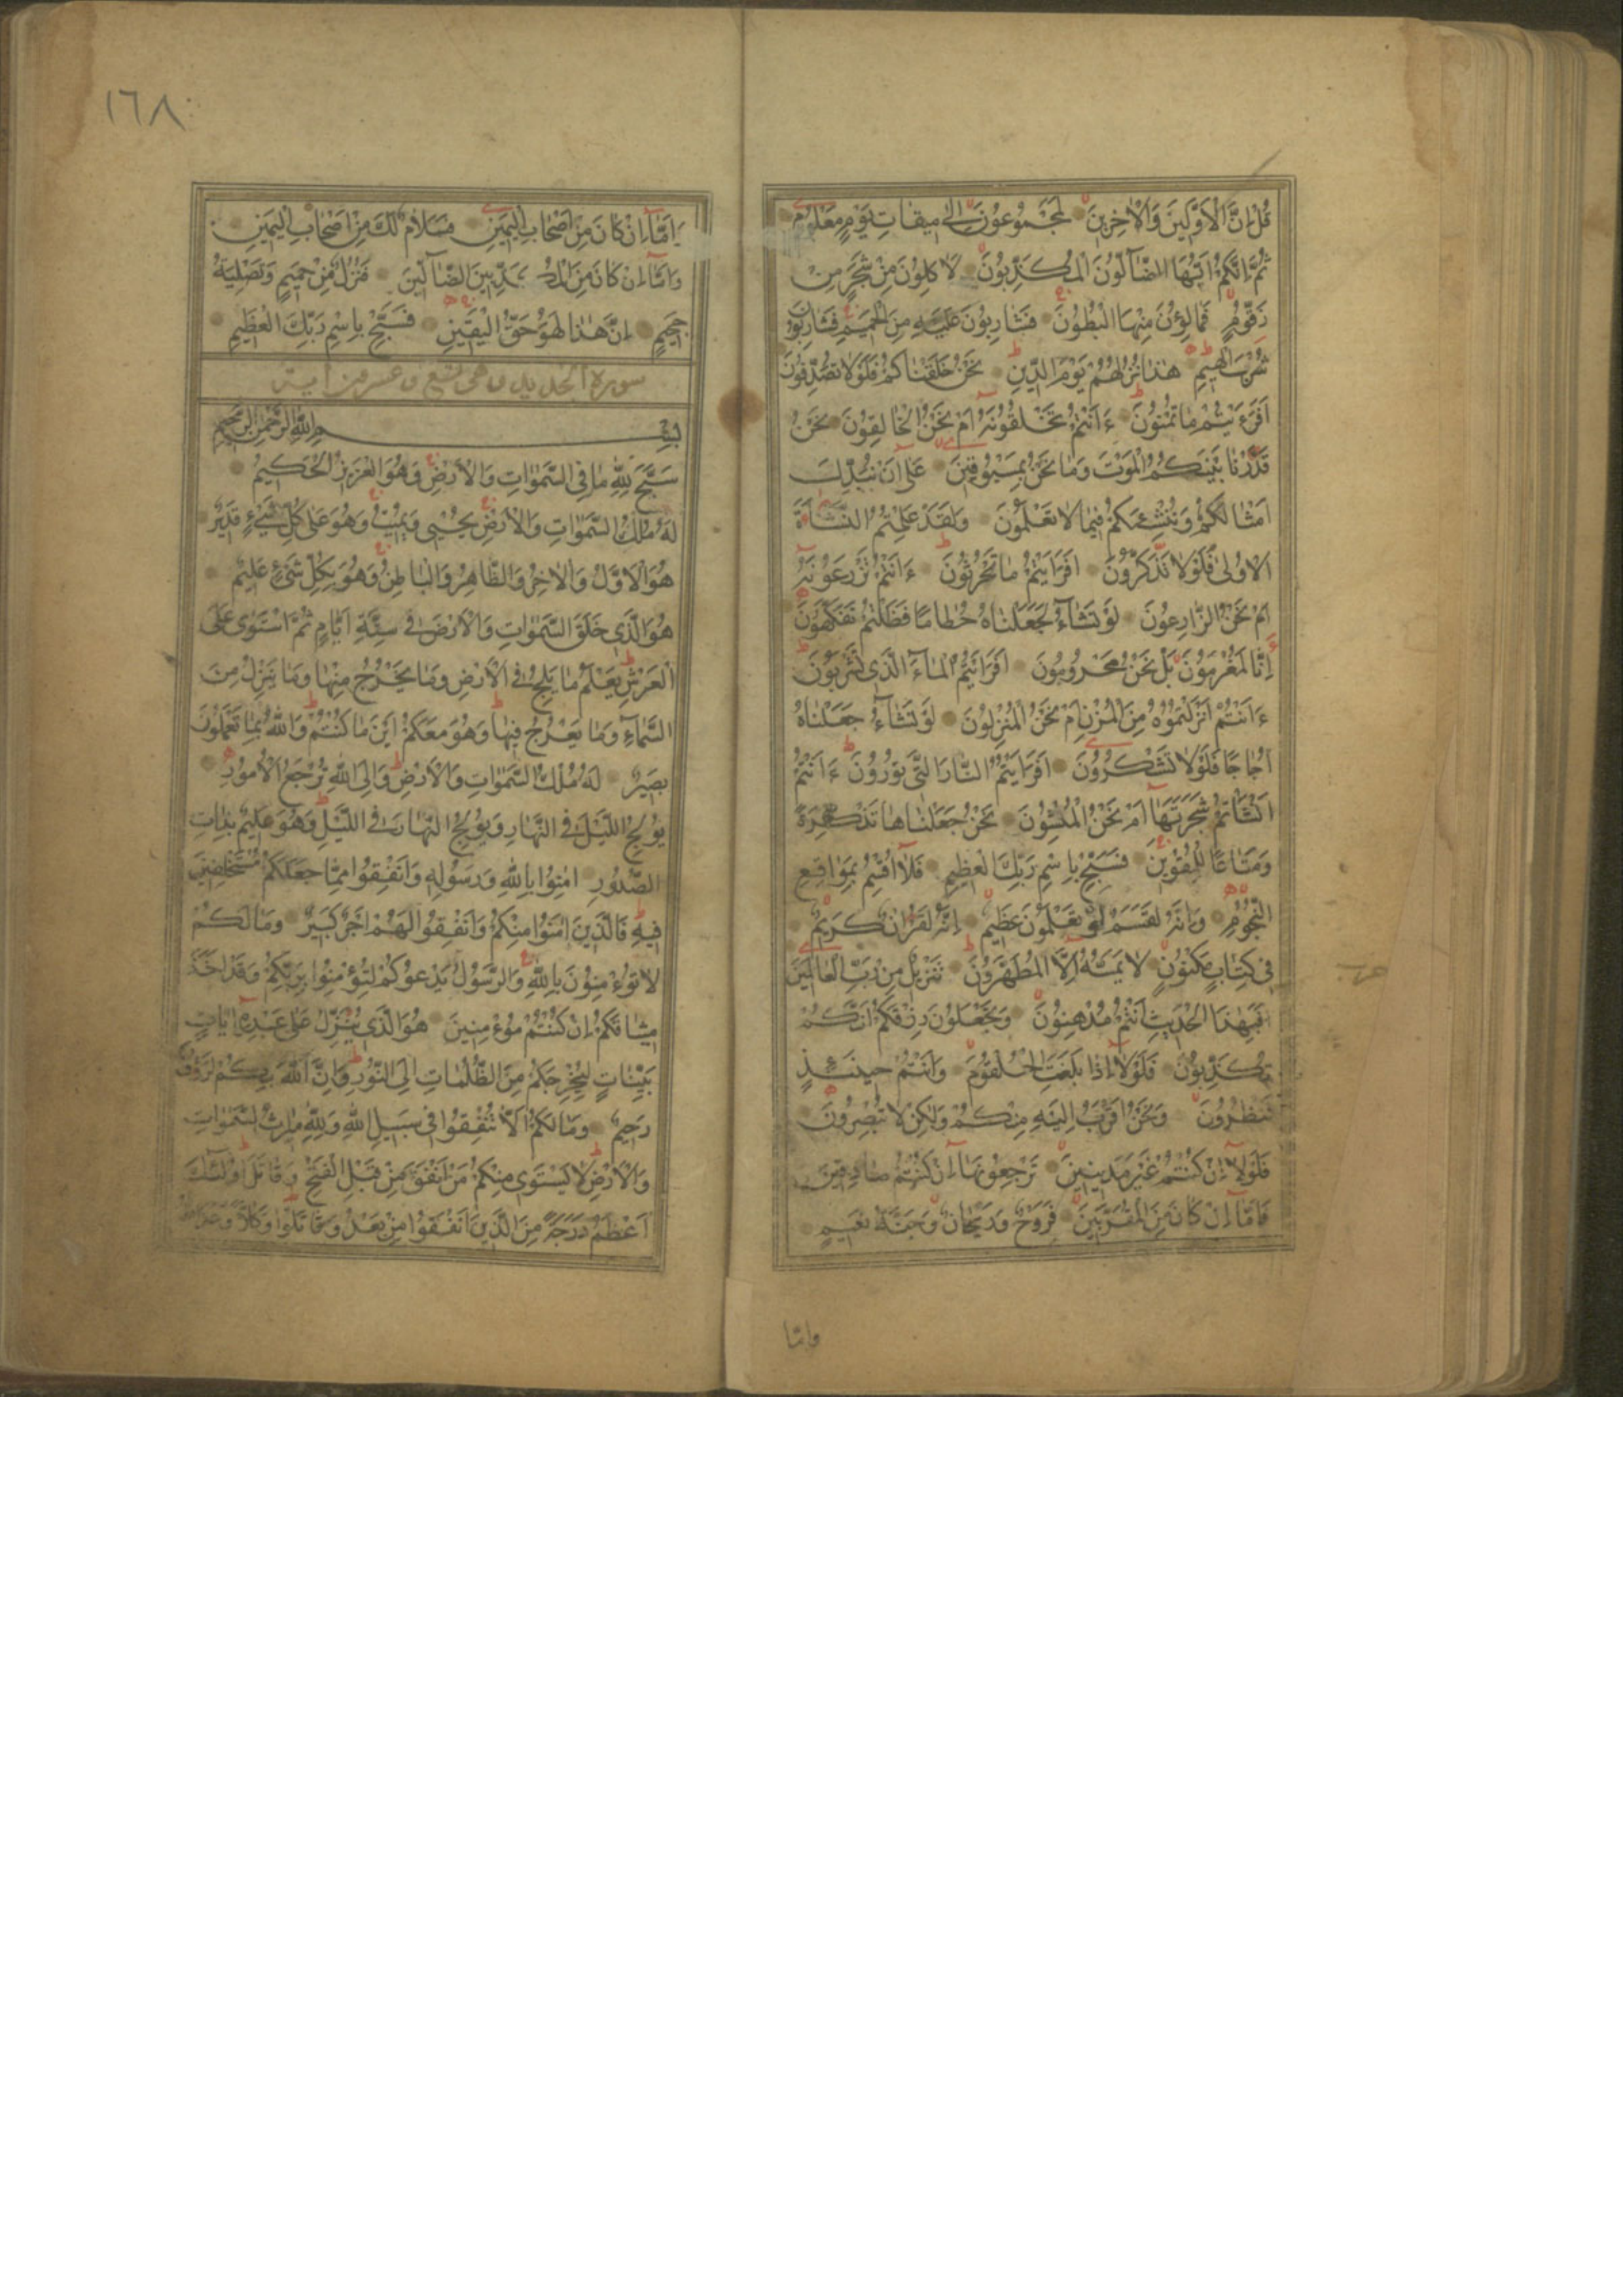 قُلْ اِنَّ الْاَوَّلينَ وَالْاٰخِرينَ لَمَجْمُوعُونَ اِلٰى ميقَاتِ يَوْمٍ مَعْلُومٍ
ثُمَّ اِنَّكُمْ اَيُّهَا الضَّآلُّونَ الْمُكَذِّبُونَ لَاٰكِلُونَ مِنْ شَجَرٍ مِنْ
زَقُّومٍ فَمَالِؤُنَ مِنْهَا الْبُطُونَ فَشَارِبُونَ عَلَيْهِ مِنَ الْحَميمِ فَشَارِبُونَ
شُرْبَ الْهيمِ هٰذَا نُزُلُهُمْ يَوْمَ الدّينِ نَحْنُ خَلَقْنَاكُمْ فَلَوْلَا تُصَدِّقُونَ
اَفَرَءَيْتُمْ مَا تُمْنُونَ ءَاَنْتُمْ تَخْلُقُونَهُ اَمْ نَحْنُ الْخَالِقُونَ نَحْنُ
قَدَّرْنَا بَيْنَكُمُ الْمَوْتَ وَمَا نَحْنُ بِمَسْبُوقينَ عَلٰى اَنْ نُبَدِّلَ
اَمْثَالَكُمْ وَنُنْشِئَكُمْ فيمَا لَا تَعْلَمُونَ وَلَقَدْ عَلِمْتُمُ النَّشْاَةَ
الْاُولٰى فَلَوْلَا تَذَكَّرُونَ اَفَرَاَيْتُمْ مَا تَحْرُثُونَ ءَاَنْتُمْ تَزْرَعُونَهُ
اَمْ نَحْنُ الزَّارِعُونَ لَوْ نَشَآءُ لَجَعَلْنَاهُ حُطَامًا فَظَلْتُمْ تَفَكَّهُونَ
اِنَّا لَمُغْرَمُونَ بَلْ نَحْنُ مَحْرُومُونَ اَفَرَاَيْتُمُ الْمَآءَ الَّذى تَشْرَبُونَ
ءَاَنْتُمْ اَنْزَلْتُمُوهُ مِنَ الْمُزْنِ اَمْ نَحْنُ الْمُنْزِلُونَ لَوْ نَشَآءُ جَعَلْنَاهُ
اُجَاجًا فَلَوْلَا تَشْكُرُونَ اَفَرَاَيْتُمُ النَّارَ الَّتى تُورُونَ ءَاَنْتُمْ
اَنْشَاْتُمْ شَجَرَتَهَا اَمْ نَحْنُ الْمُنْشِؤُنَ نَحْنُ جَعَلْنَاهَا تَذْكِرَةً
وَمَتَاعًا لِلْمُقْوينَ فَسَبِّحْ بِاسْمِ رَبِّكَ الْعَظيمِ فَلَا اُقْسِمُ بِمَوَاقِعِ
النُّجُومِ وَاِنَّهُ لَقَسَمٌ لَوْ تَعْلَمُونَ عَظيمٌ اِنَّهُ لَقُرْاٰنٌ كَريمٌ
فى كِتَابٍ مَكْنُونٍ لَا يَمَسُّهُ اِلَّا الْمُطَهَّرُونَ تَنْزيلٌ مِنْ رَبِّ الْعَالَمينَ
فَبِهٰذَا الْحَديثِ اَنْتُمْ مُدْهِنُونَ وَتَجْعَلُونَ رِزْقَكُمْ اَنَّكُمْ
تُكَذِّبُونَ فَلَوْلَا اِذَا بَلَغَتِ الْحُلْقُومَ وَاَنْتُمْ حينَئِذٍ
تَنْظُرُونَ وَنَحْنُ اَقْرَبُ اِلَيْهِ مِنْكُمْ وَلٰكِنْ لَا تُبْصِرُونَ
فَلَوْلَا اِنْ كُنْتُمْ غَيْرَ مَدينينَ تَرْجِعُونَهَا اِنْ كُنْتُمْ صَادِقينَ
فَاَمَّا اِنْ كَانَ مِنَ الْمُقَرَّبينَ فَرَوْحٌ وَرَيْحَانٌ وَجَنَّةُ نَعيمٍ
واما
حزب
١٦٨
وَاَمَّا اِنْ كَانَ مِنْ اَصْحَابِ الْيَمينِ فَسَلَامٌ لَكَ مِنْ اَصْحَابِ الْيَمينِ
وَاَمَّا اِنْ كَانَ مِنَ الْمُكَذِّبينَ الضَّآلّينَ فَنُزُلٌ مِنْ حَميمٍ وَتَصْلِيَةُ
جَحيمٍ اِنَّ هٰذَا لَهُوَ حَقُّ الْيَقينِ فَسَبِّحْ بِاسْمِ رَبِّكَ الْعَظيمِ
سورة الحديد وهى تسع وعشرون اية
بِسْمِ اللّٰهِ الرَّحْمٰنِ الرَّحيمِ
سَبَّحَ لِلّٰهِ مَا فِى السَّمٰوَاتِ وَالْاَرْضِ وَهُوَ الْعَزيزُ الْحَكيمُ
لَهُ مُلْكُ السَّمٰوَاتِ وَالْاَرْضِ يُحْيى وَيُميتُ وَهُوَ عَلٰى كُلِّ شَيْءٍ قَديرٌ
هُوَ الْاَوَّلُ وَالْاٰخِرُ وَالظَّاهِرُ وَالْبَاطِنُ وَهُوَ بِكُلِّ شَيْءٍ عَليمٌ
هُوَ الَّذى خَلَقَ السَّمٰوَاتِ وَالْاَرْضَ فى سِتَّةِ اَيَّامٍ ثُمَّ اسْتَوٰى عَلَى
الْعَرْشِ يَعْلَمُ مَا يَلِجُ فِى الْاَرْضِ وَمَا يَخْرُجُ مِنْهَا وَمَا يَنْزِلُ مِنَ
السَّمَآءِ وَمَا يَعْرُجُ فيهَا وَهُوَ مَعَكُمْ اَيْنَ مَا كُنْتُمْ وَاللّٰهُ بِمَا تَعْمَلُونَ
بَصيرٌ لَهُ مُلْكُ السَّمٰوَاتِ وَالْاَرْضِ وَاِلَى اللّٰهِ تُرْجَعُ الْاُمُورُ
يُولِجُ الَّيْلَ فِى النَّهَارِ وَيُولِجُ النَّهَارَ فِى الَّيْلِ وَهُوَ عَليمٌ بِذَاتِ
الصُّدُورِ اٰمِنُوا بِاللّٰهِ وَرَسُولِهِ وَاَنْفِقُوا مِمَّا جَعَلَكُمْ مُسْتَخْلَفينَ
فيهِ فَالَّذينَ اٰمَنُوا مِنْكُمْ وَاَنْفَقُوا لَهُمْ اَجْرٌ كَبيرٌ وَمَا لَكُمْ
لَا تُؤْمِنُونَ بِاللّٰهِ وَالرَّسُولُ يَدْعُوكُمْ لِتُؤْمِنُوا بِرَبِّكُمْ وَقَدْ اَخَذَ
ميثَاقَكُمْ اِنْ كُنْتُمْ مُؤْمِنينَ هُوَ الَّذى يُنَزِّلُ عَلٰى عَبْدِهِ اٰيَاتٍ
بَيِّنَاتٍ لِيُخْرِجَكُمْ مِنَ الظُّلُمَاتِ اِلَى النُّورِ وَاِنَّ اللّٰهَ بِكُمْ لَرَؤُفٌ
رَحيمٌ وَمَا لَكُمْ اَلَّا تُنْفِقُوا فى سَبيلِ اللّٰهِ وَلِلّٰهِ ميرَاثُ السَّمٰوَاتِ
وَالْاَرْضِ لَا يَسْتَوى مِنْكُمْ مَنْ اَنْفَقَ مِنْ قَبْلِ الْفَتْحِ وَقَاتَلَ اُولٰئِكَ
اَعْظَمُ دَرَجَةً مِنَ الَّذينَ اَنْفَقُوا مِنْ بَعْدُ وَقَاتَلُوا وَكُلًّا وَعَدَ اللّٰهُ